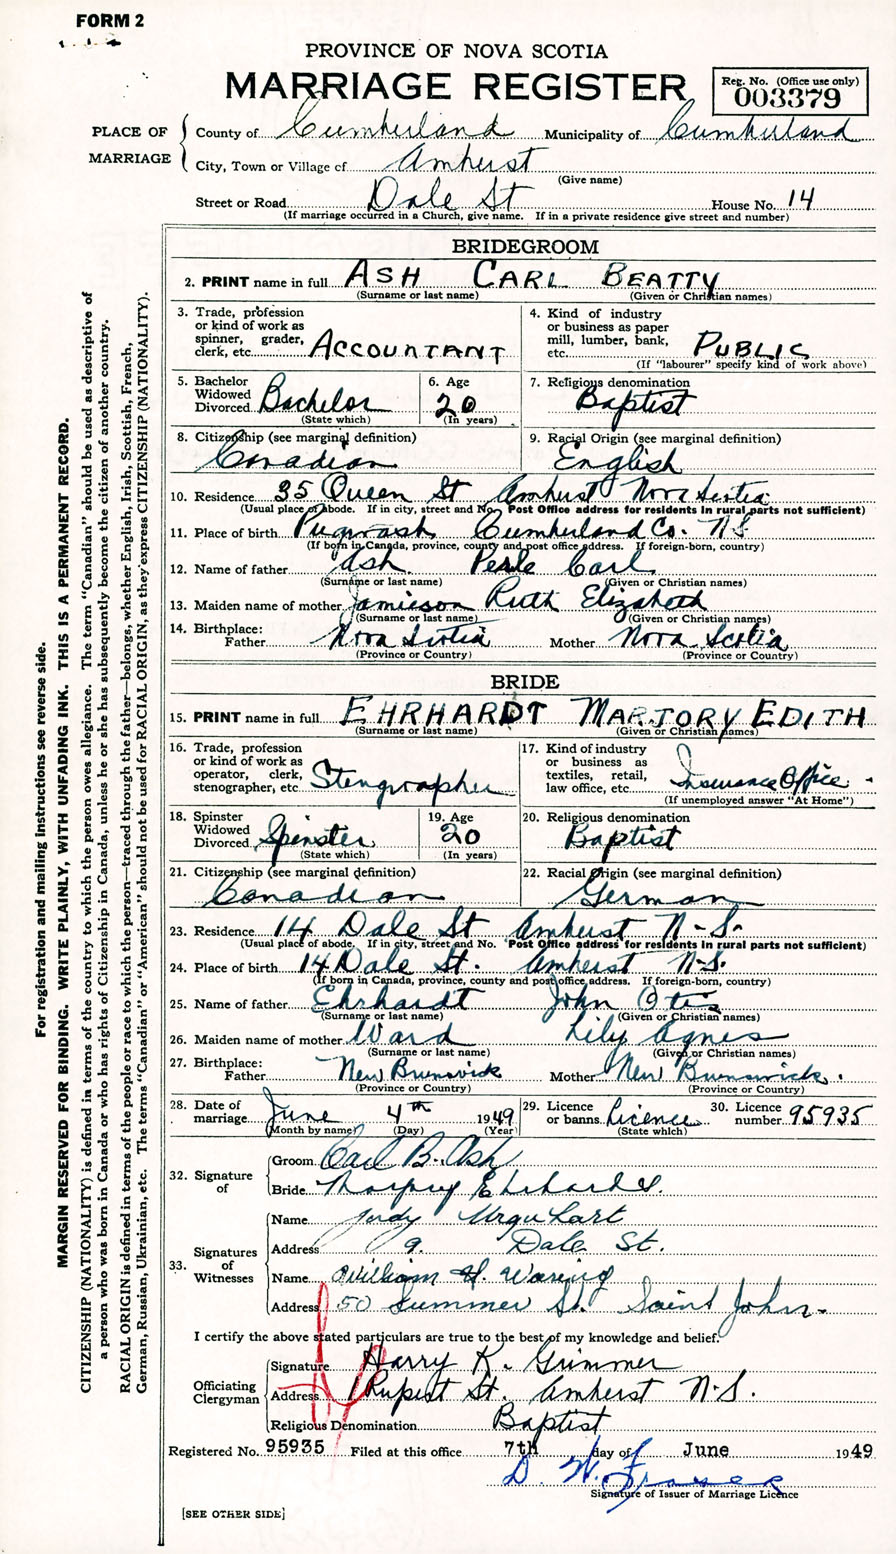 FORM 2
PROVINCE OF NOVA SCOTIA
MARRIAGE REGISTER
Reg. No. (Office use only)
003379
PLACE OF MARRIAGE
County of Cumberland Municipality of Cumberland
City, Town or Village of Amherst
(Give name)
Street or Road Dale St House No. 14
(If marriage occurred in a Church, give name. If in a private residence give street and number)
BRIDEGROOM
2. PRINT name in full ASH CARL BEATTY
(Surname or last name) (Given or Christian names)
3. Trade, profession
or kind of work as
spinner, grader,
clerk, etc. ACCOUNTANT
4. Kind of industry
or business as paper
mill, lumber, bank,
etc. PUBLIC
(If "labourer" specify kind of work above)
5. Bachelor
Widowed
Divorced Bachelor
(State which)
6. Age
20
(In years)
7. Religious denomination
Baptist
8. Citizenship (see marginal definition)
Canadian
9. Racial Origin (see marginal definition)
English
10. Residence 35 Queen St Amherst Nova Scotia
(Usual place of abode. If in city, street and No. Post Office address for residents in rural parts not sufficient)
11. Place of birth Pugwash Cumberland Co. N.S
(If born in Canada, province, county and post office address. If foreign-born, country)
12. Name of father Ash Perle Carl
(Surname or last name) (Given or Christian names)
13. Maiden name of mother Jamieson Ruth Elizabeth
(Surname or last name) (Given or Christian names)
14. Birthplace:
Father Nova Scotia Mother Nova Scotia
(Province or Country) (Province or Country)
BRIDE
15. PRINT name in full EHRHARDT MARJORY EDITH
(Surname or last name) (Given or Christian names)
16. Trade, profession
or kind of work as
operator, clerk,
stenographer, etc Stengrapher
17. Kind of industry
or business as
textiles, retail,
law office, etc. Insurance Office
(If unemployed answer "At Home")
18. Spinster
Widowed
Divorced Spinster
(State which)
19. Age
20
(In years)
20. Religious denomination
Baptist
21. Citizenship (see marginal definition)
Canadian
22. Racial Origin (see marginal definition)
German
23. Residence 14 Dale St Amherst N-S.
(Usual place of abode. If in city, street and No. Post Office address for residents in rural parts not sufficient)
24. Place of birth 14 Dale St. Amherst N-S.
(If born in Canada, province, county and post office address. If foreign-born, country)
25. Name of father Ehrhardt John Otis
(Surname or last name) (Given or Christian names)
26. Maiden name of mother Ward Lily Agnes
(Surname or last name) (Given or Christian names)
27. Birthplace:
Father New Brunswick Mother New Brunswick.
(Province or Country) (Province or Country)
28. Date of
marriage June 4th 1949
(Month by name) (Day) (Year)
29. Licence
or banns Licence
(State which)
30. Licence
number 95935
32. Signature of
Groom Carl B. Ash
Bride Ehrhardt
33. Signatures of Witnesses
Name Judy Urquhart
Address 9. Dale St.
Name William H. Waring
Address 50 Summer St. Saint John
I certify the above stated particulars are true to the best of my knowledge and belief.
Officiating Clergyman
Signature Harry K. Grimmer
Address 1 Rupert St. Amherst N.S.
Religious Denomination Baptist
Registered No. 95935 Filed at this office 7th day of June 1949
D. W. Fraser
Signature of Issuer of Marriage Licence
[SEE OTHER SIDE]
For registration and mailing instructions see reverse side.
MARGIN RESERVED FOR BINDING. WRITE PLAINLY, WITH UNFADING INK. THIS IS A PERMANENT RECORD.
CITIZENSHIP (NATIONALITY) is defined in terms of the country to which the person owes allegiance. The term "Canadian" should be used as descriptive of
a person who was born in Canada or who has rights of Citizenship in Canada, unless he or she has subsequently become the citizen of another country.
RACIAL ORIGIN is defined in terms of the people or race to which the person—traced through the father—belongs, whether English, Irish, Scottish, French,
German, Russian, Ukrainian, etc. The terms "Canadian" or "American" should not be used for RACIAL ORIGIN, as they express CITIZENSHIP (NATIONALITY).